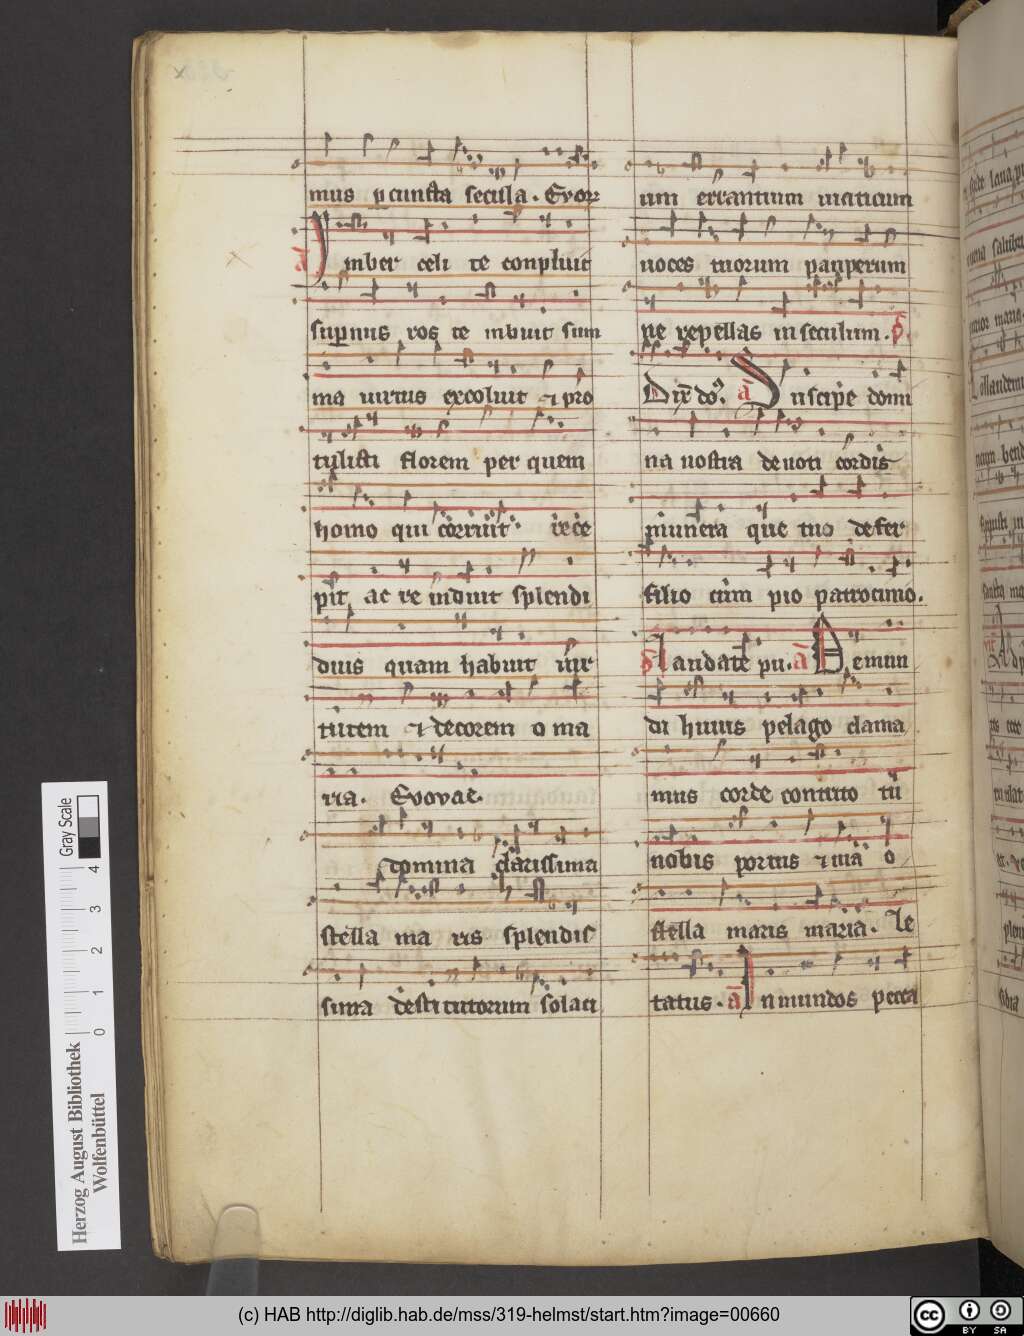 mus p cuncta secula. Evovae
a Ymber celi te conpluit
supnus ros te inbuit sum
ma uirtus excoluit et pro
tulisti florem per quem
homo qui corruit rece
pit ac re induit splendi
dius quam habuit uir
tutem et decorem o ma
ria. Evovae.
Domina clarissima
stella ma ris splendis
sima destitutorum solaci
um errantium uiaticum
uoces tuorum pauperum
ne repellas in seculum. p
Dix do. a Suscipe domi
na nostra deuoti cordis
munera que tuo defer
filio cum pio patrocinio.
p Laudate pu. a A e mun
di huius pelago clama
mus corde contrito tu
nobis portus et uia o
stella maris maria. Le
tatus. a In mundos pecca
Gray Scale
0 1 2 3 4
Herzog August Bibliothek
Wolfenbüttel
(c) HAB http://diglib.hab.de/mss/319-helmst/start.htm?image=00660
cc BY SA